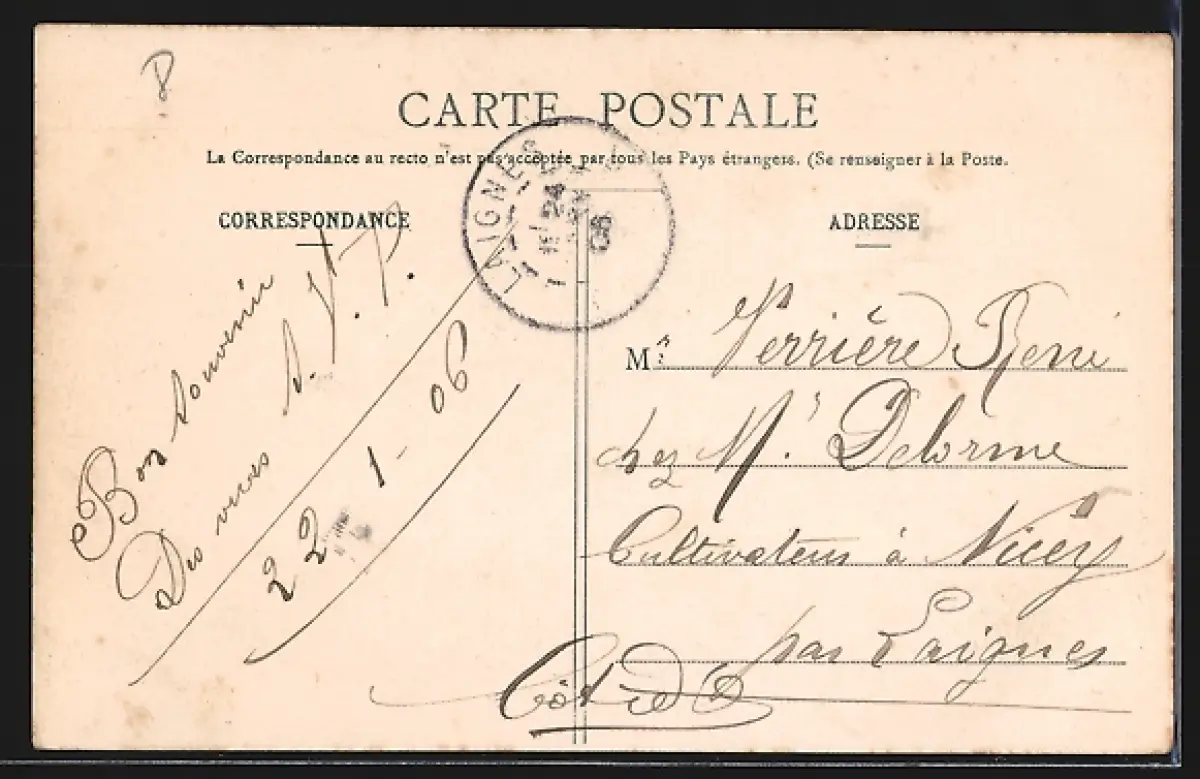 CARTE POSTALE
La Correspondance au recto n'est pas acceptée par tous les Pays étrangers. (Se renseigner à la Poste.
CORRESPONDANCE
ADRESSE
LAIGNES
24
06
Bon Souvenir
Des vues S. V. P.
22-1-06
Mr: Verrière René
chez Mr Delorme
Cultivateur à Nicey
par Laignes
Côte d'